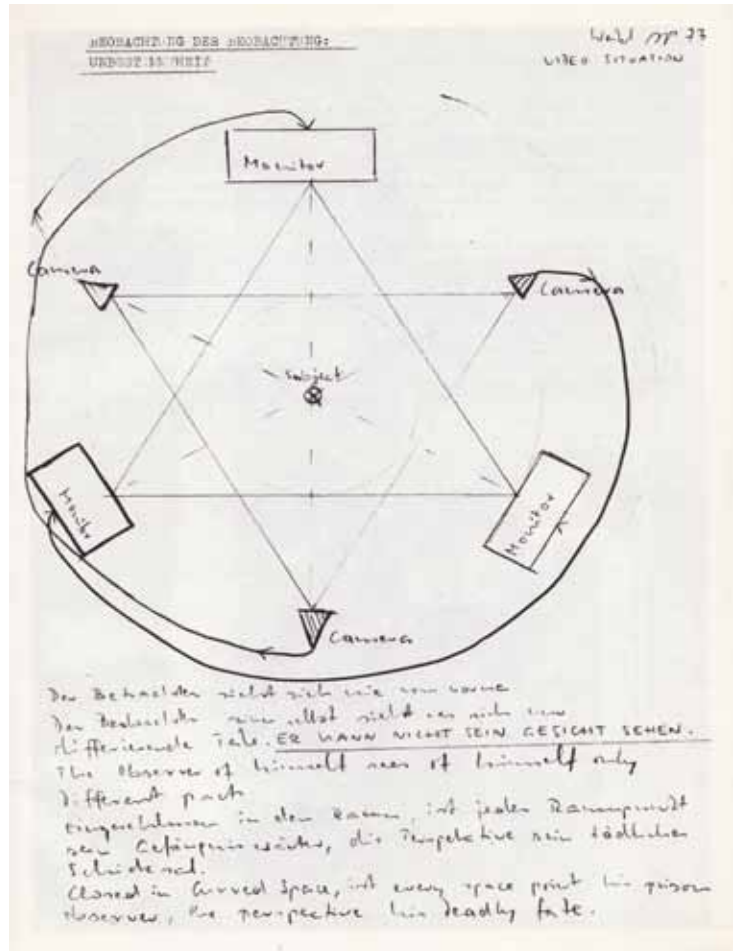 BEOBACHTUNG DER BEOBACHTUNG:
UNBESTIMMTHEIT
VIDEO SITUATION
Monitor
Camera
Camera
Subject
Monitor
Monitor
Camera
Der Betrachter sieht sich nie von vorne
Der Beobachter selbst sieht von sich nur
differierende Teile. ER KANN NICHT SEIN GESICHT SEHEN.
The Observer of himself sees of himself only
different parts
Eingeschlossen in den Raum, ist jeder Raumpunkt
sein Gefängniswärter, die Perspektive sein tödliches
Schicksal.
Closed in Curved Space, ist every space point his prison
observer, the perspective his deadly fate.